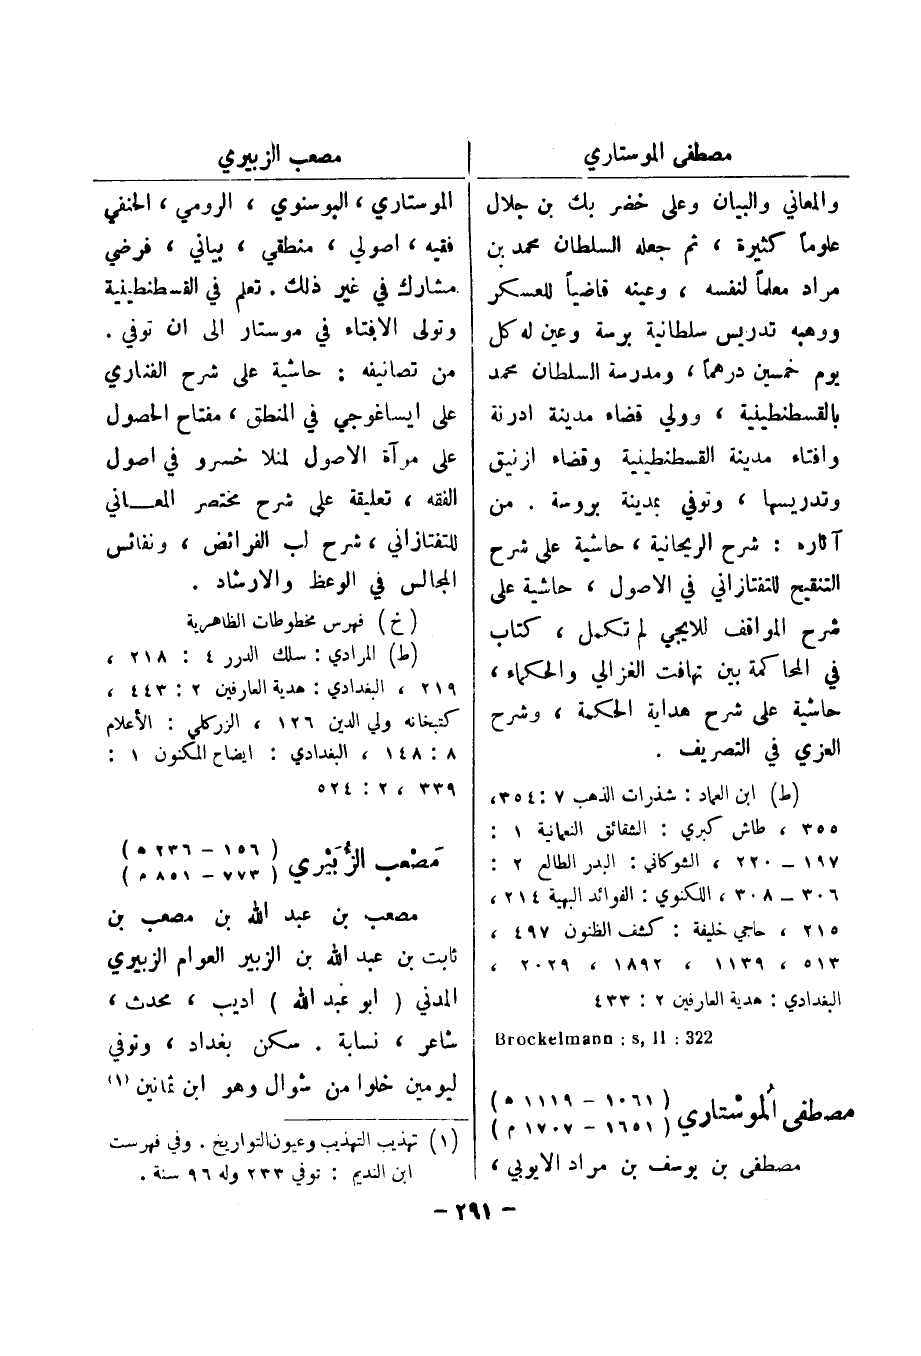 مصطفى الموستاري
مصعب الزبيري
والمعاني والبيان وعلى خضر بك بن جلال
علوماً كثيرة ، ثم جعله السلطان محمد بن
مراد معلماً لنفسه ، وعينه قاضياً للعسكر
ووهبه تدريس سلطانية برسة وعين له كل
يوم خمسين درهماً ، ومدرسة السلطان محمد
بالقسطنطينية ، وولي قضاء مدينة ادرنة
وافتاء مدينة القسطنطينية وقضاء ازنيق
وتدريسها ، وتوفي بمدينة بروسة . من
آثاره : شرح الريحانية ، حاشية على شرح
التنقيح للتفتازاني في الاصول ، حاشية على
شرح المواقف للايجي لم تكمل ، كتاب
في المحاكمة بين تهافت الغزالي والحكماء ،
حاشية على شرح هداية الحكمة ، وشرح
العزي في التصريف .
(ط) ابن العماد : شذرات الذهب ٧ : ٣٥٤ ،
٣٥٥ ، طاش كبري : الشقائق النعمانية ١ :
١٩٧ – ٢٢٠ ، الشوكاني : البدر الطالع ٢ :
٣٠٦ – ٣٠٨ ، اللكنوي : الفوائد البهية ٢١٤ ،
٢١٥ ، حاجي خليفة : كشف الظنون ٤٩٧ ،
٥١٣ ، ١١٣٩ ، ١٨٩٢ ، ٢٠٢٩ ،
البغدادي : هدية العارفين ٢ : ٤٣٣
Brockelmann : s, II : 322
مصطفى المُوسْتاري (١٠٦١ – ١١١٩ هـ)
(١٦٥١ – ١٧٠٧ م)
مصطفى بن يوسف بن مراد الايوبي ،
الموستاري ، البوسنوي ، الرومي ، الحنفي
فقيه ، اصولي ، منطقي ، بياني ، فرضي
مشارك في غير ذلك . تعلم في القسطنطينية
وتولى الافتاء في موستار الى ان توفي .
من تصانيفه : حاشية على شرح الفناري
على ايساغوجي في المنطق ، مفتاح الحصول
على مرآة الاصول لمنلا خسرو في اصول
الفقه ، تعليقة على شرح مختصر المعـاني
للتفتازاني ، شرح لب الفرائض ، ونفائس
المجالس في الوعظ والارشاد .
(خ) فهرس مخطوطات الظاهرية
(ط) المرادي : سلك الدرر ٤ : ٢١٨ ،
٢١٩ ، البغدادي : هدية العارفين ٢ : ٤٤٣ ،
كتبخانه ولي الدين ١٢٦ ، الزركلي : الأعلام
٨ : ١٤٨ ، البغدادي : ايضاح المكنون ١ :
٣٣٩ ، ٢ : ٥٢٤
مَصْعب الزُّبَيْري (١٥٦ – ٢٣٦ هـ)
(٧٧٣ – ٨٥١ م)
مصعب بن عبد الله بن مصعب بن
ثابت بن عبد الله بن الزبير العوام الزبيري
المدني ( ابو عبد الله ) اديب ، محدث ،
شاعر ، نسابة . سكن بغداد ، وتوفي
ليومين خلوا من شوال وهو ابن ثمانين (١)
(١) تهذيب التهذيب وعيون التواريخ . وفي فهرست
ابن النديم : توفي ٢٣٣ وله ٩٦ سنة .
– ٢٩١ –